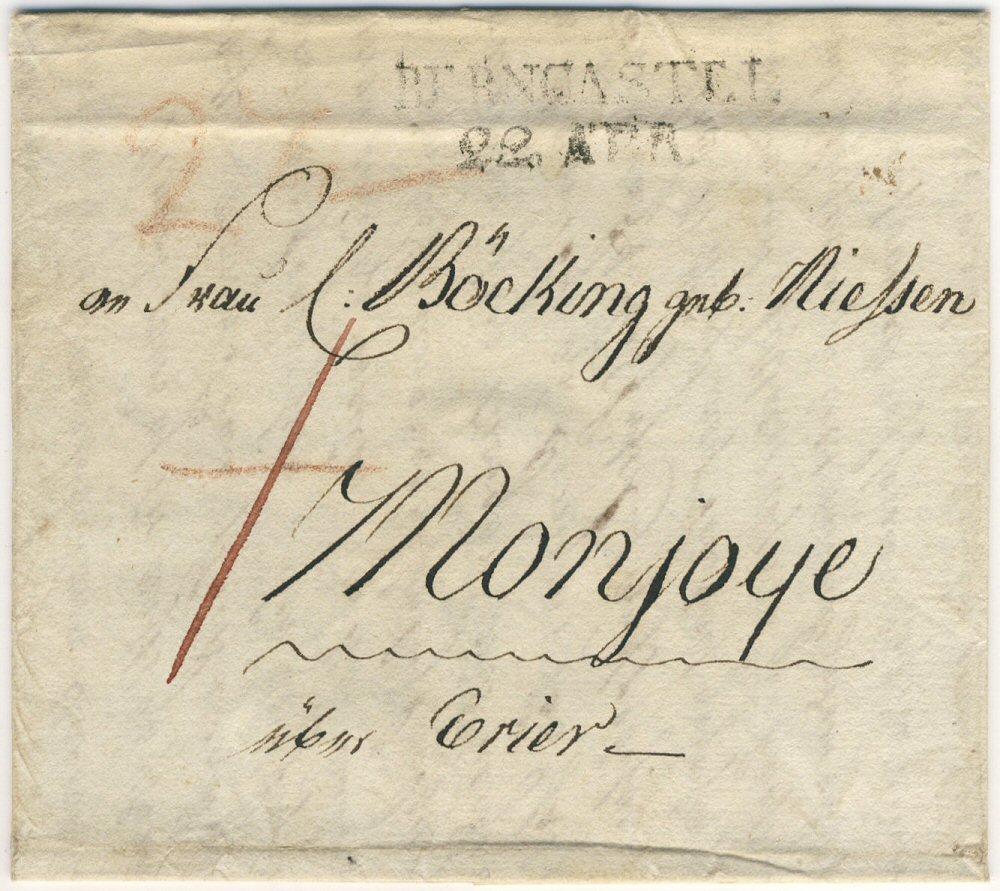 BERNCASTEL
22 APR
an Frau C: Böcking geb: Nießen
Monjoye
über Trier